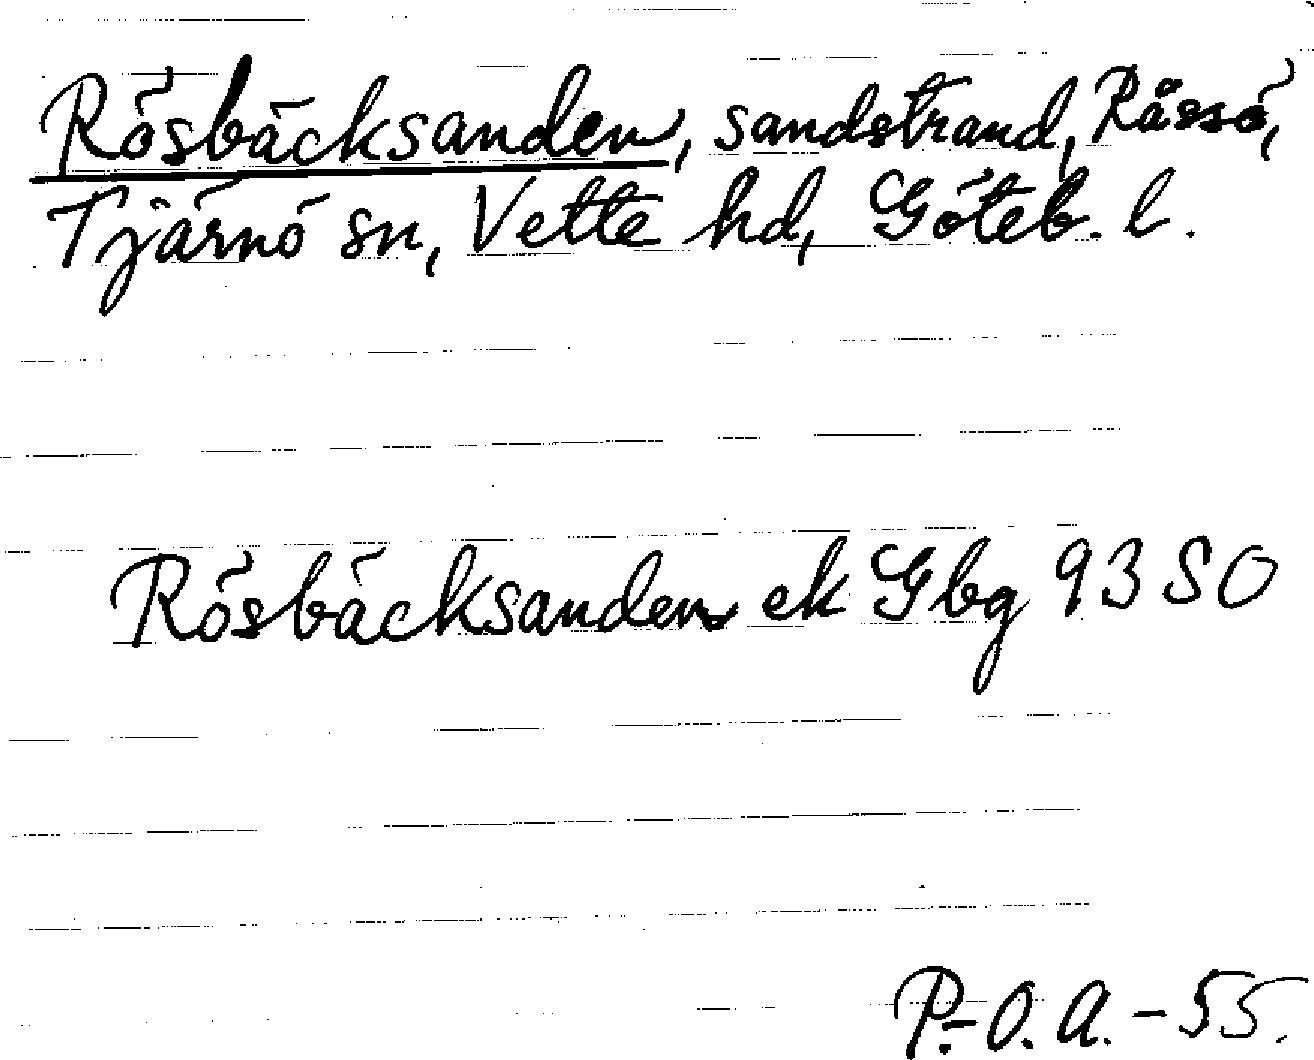 Rösbäcksanden, sandstrand, Råssö,
Tjärnö sn, Vette hd, Göteb. l.
Rösbäcksanden ek Gbg 93 SO
P.-O. A. - 55.